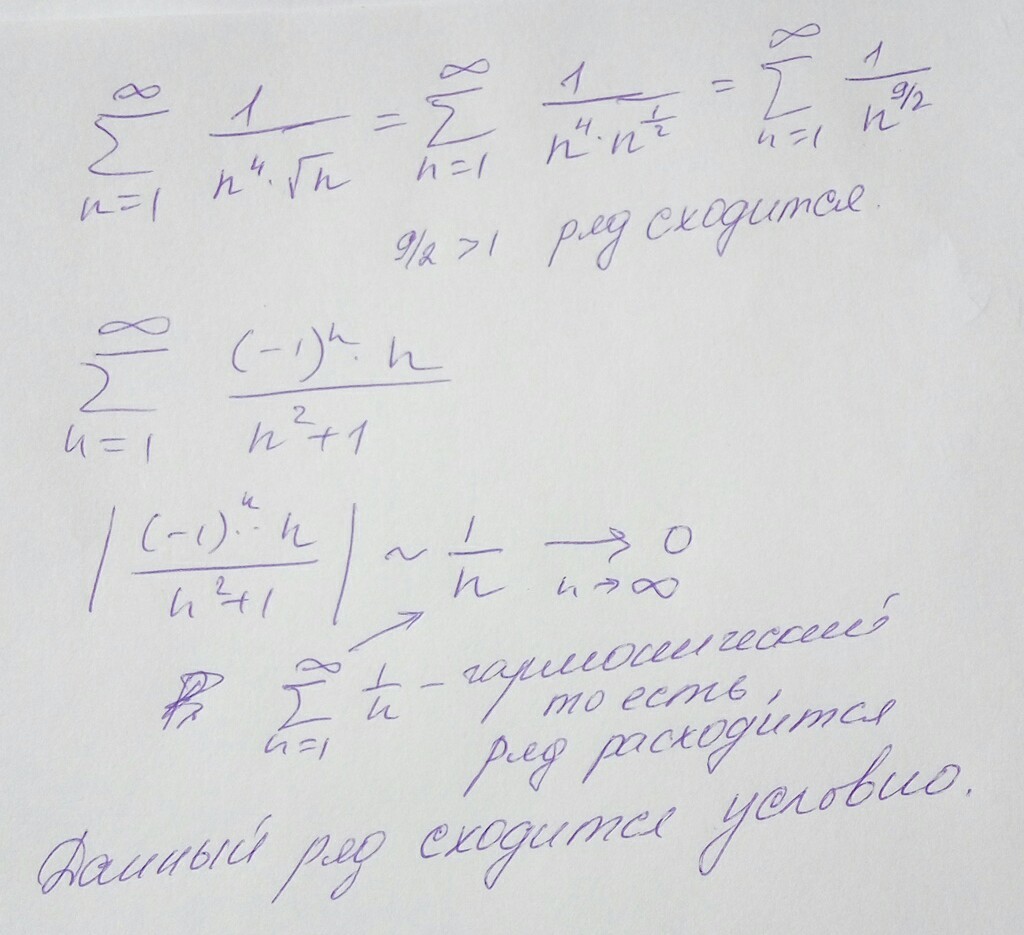 ∞ ∑ n=1 1/(n⁴·√n) = ∞ ∑ n=1 1/(n⁴·n^(1/2)) = ∞ ∑ n=1 1/n^(9/2)
9/2 >1 ряд сходится.
∞ ∑ n=1 ((-1)ⁿ· n)/(n²+1)
|((-1)ⁿ· n)/(n²+1)| ~ 1/n → 0 n→∞
∞ ∑ n=1 1/n – гармонический
то есть,
ряд расходится
Данный ряд сходится условно.